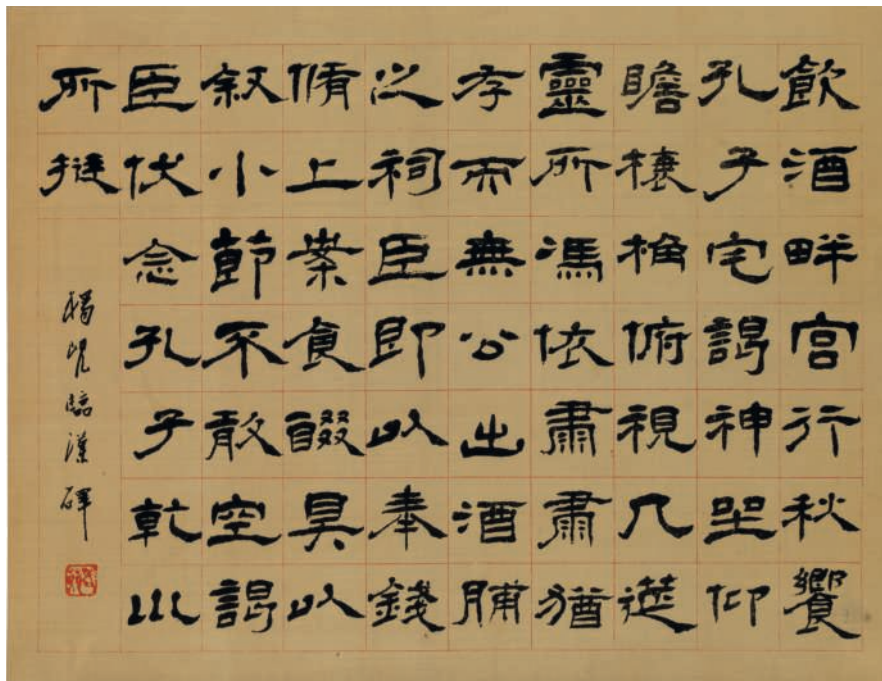 飲酒畔宮行秋饗
孔子宅謁神坐仰
瞻榱桷俯視几筵
靈所馮依肅肅猶
存而無公出酒脯
之祠臣即以奉錢
脩上案食醊具以
叙小節不敢空謁
臣伏念孔子乾川
所挺
楊峴臨漢碑